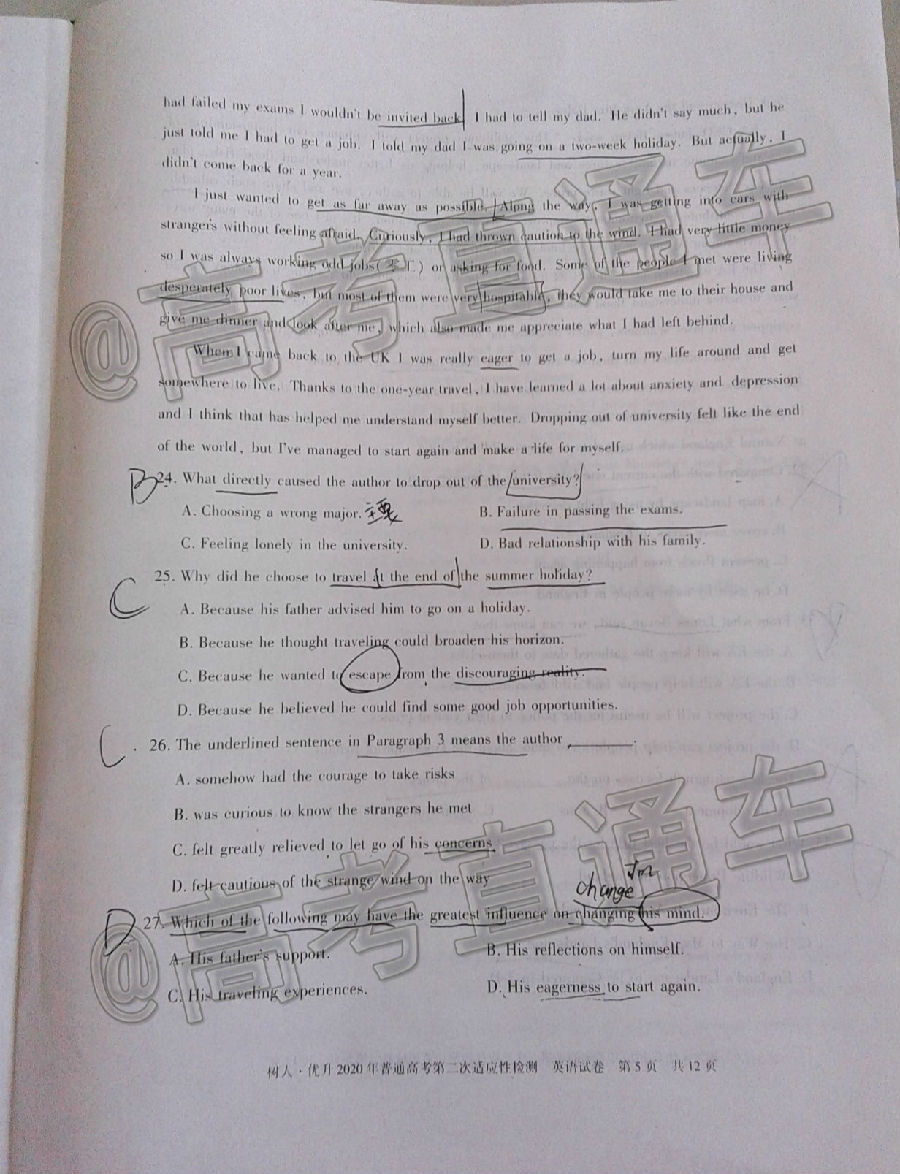 had failed my exams I wouldn't be invited back. I had to tell my dad. He didn't say much, but he
just told me I had to get a job. I told my dad I was going on a two-week holiday. But actually, I
didn't come back for a year.
I just wanted to get as far away as possible. Along the way, I was getting into cars with
strangers without feeling afraid. Curiously, I had thrown caution to the wind. I had very little money
so I was always working odd jobs(零工) or asking for food. Some of the people I met were living
desperately poor lives, but most of them were very hospitable, they would take me to their house and
give me dinner and look after me, which also made me appreciate what I had left behind.
When I came back to the UK I was really eager to get a job, turn my life around and get
somewhere to live. Thanks to the one-year travel, I have learned a lot about anxiety and depression
and I think that has helped me understand myself better. Dropping out of university felt like the end
of the world, but I've managed to start again and make a life for myself.
B 24. What directly caused the author to drop out of the university?
A. Choosing a wrong major. 主要
B. Failure in passing the exams.
C. Feeling lonely in the university.
D. Bad relationship with his family.
C 25. Why did he choose to travel at the end of the summer holiday?
A. Because his father advised him to go on a holiday.
B. Because he thought traveling could broaden his horizon.
C. Because he wanted to escape from the discouraging reality.
D. Because he believed he could find some good job opportunities.
C. 26. The underlined sentence in Paragraph 3 means the author ________.
A. somehow had the courage to take risks
B. was curious to know the strangers he met
C. felt greatly relieved to let go of his concerns
D. felt cautious of the strange wind on the way
change
D 27. Which of the following may have the greatest influence on changing his mind.
A. His father's support.
B. His reflections on himself.
C. His traveling experiences.
D. His eagerness to start again.
树人·优升2020年普通高考第二次适应性检测 英语试卷 第5页 共12页
@高考直通车
@高考直通车